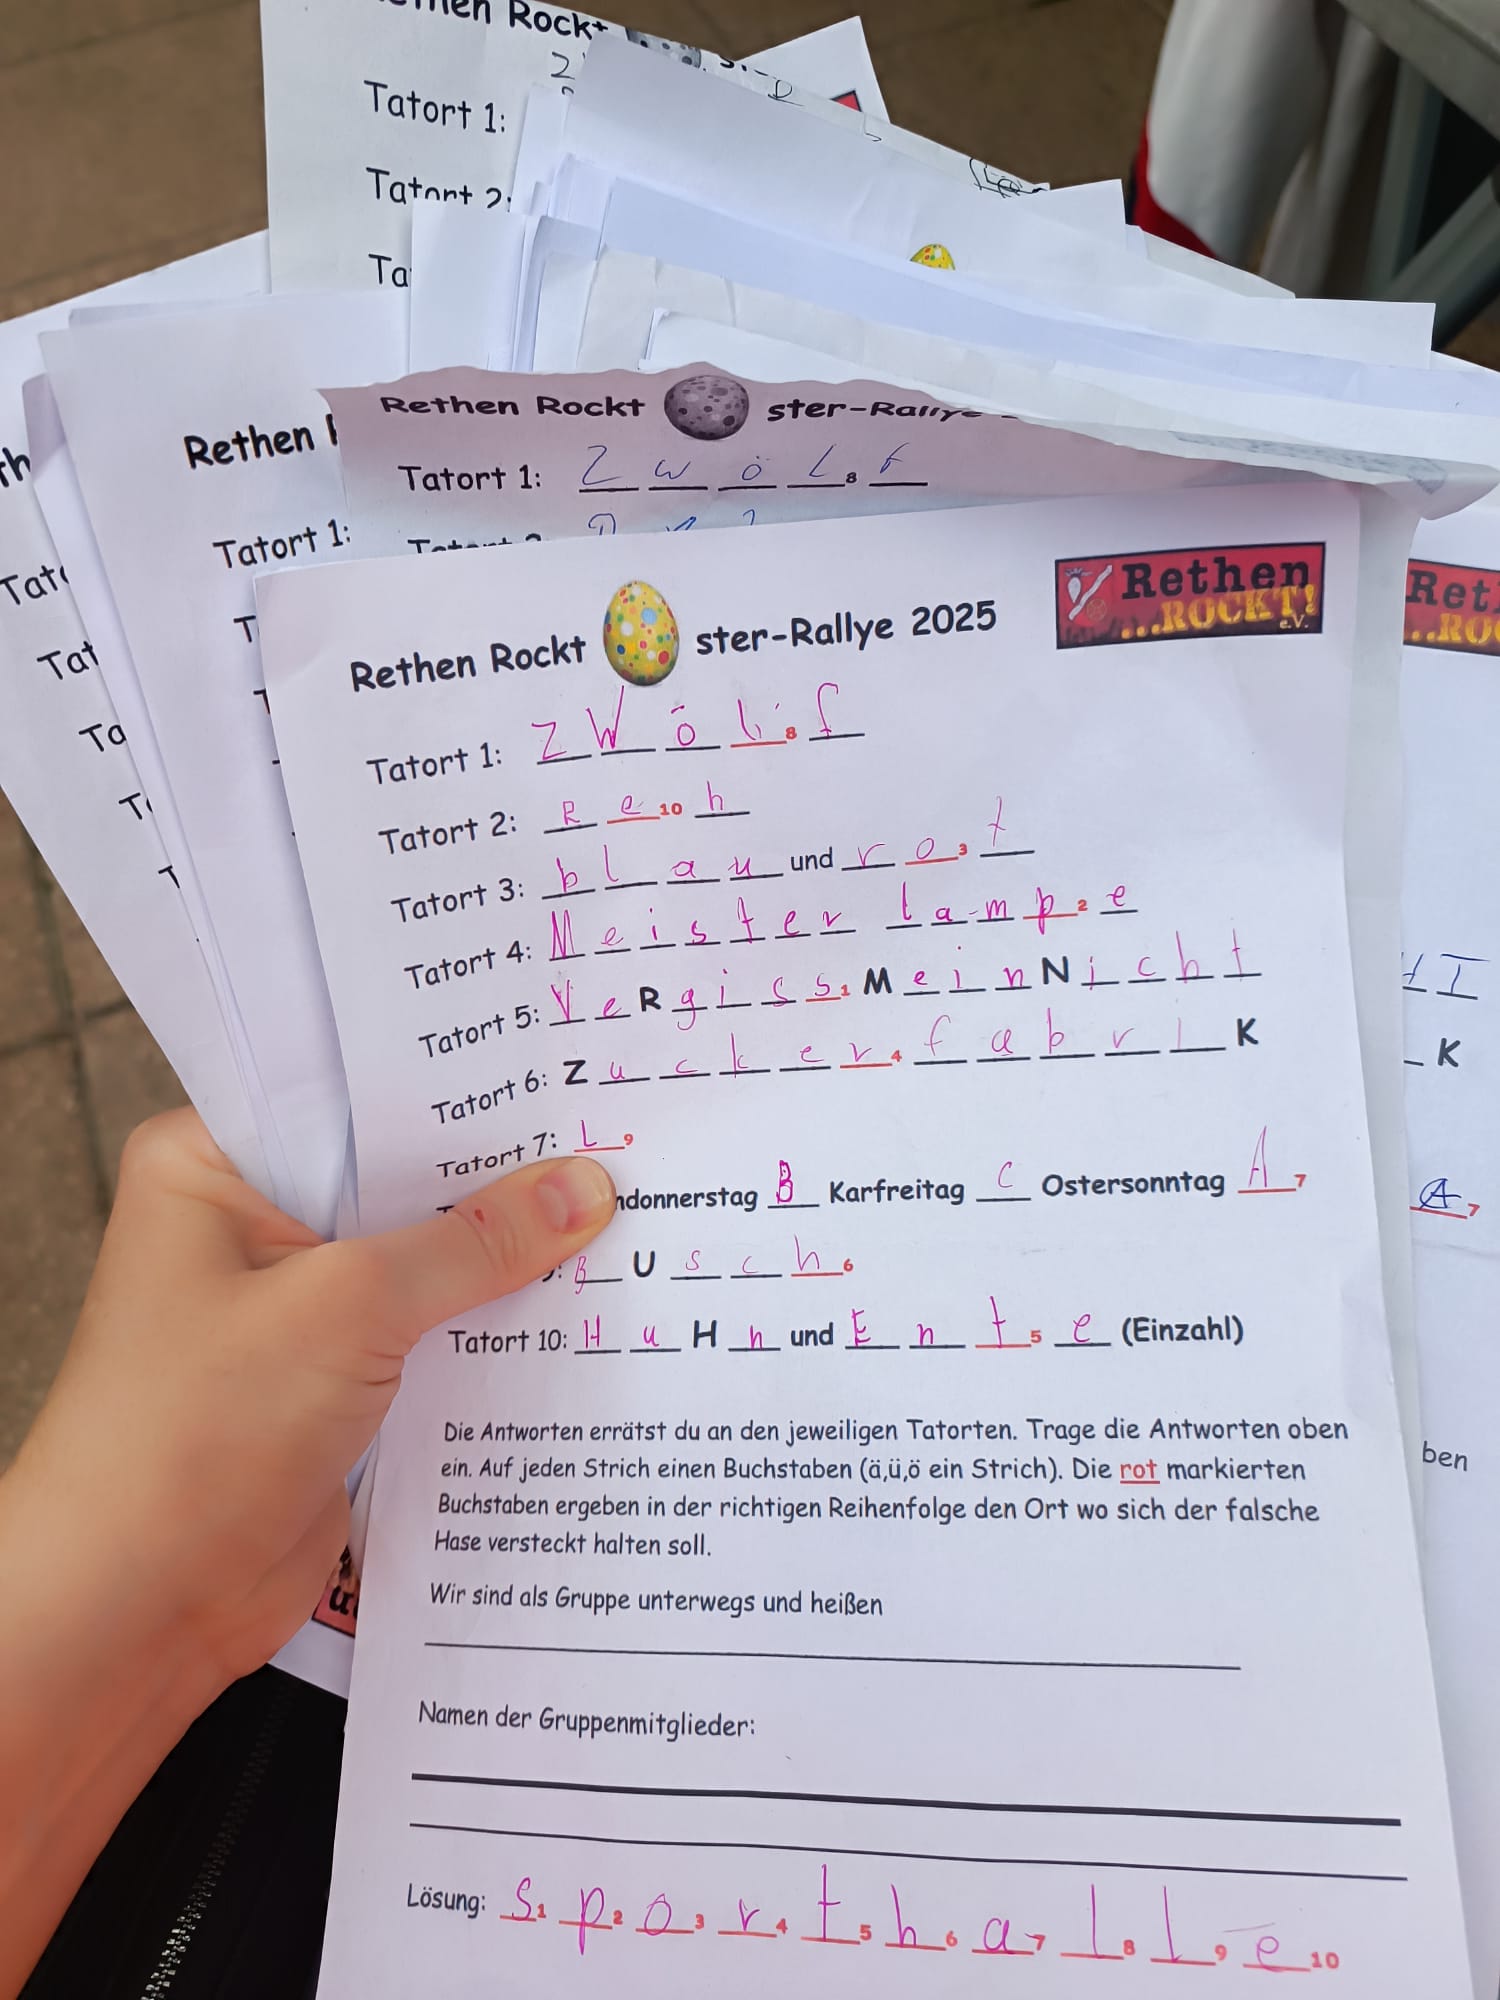 Rockt
Tatort 1:
Tatort 2:
Rethen Rockt ster-Rallye
Tatort 1: Z w ö L 8 f
Rethen
Tatort 1:
Rethen
...ROCKT!
e.V.
Rethen Rockt ster-Rallye 2025
Tatort 1: Z W ö l 8 f
Tatort 2: R e 10 h
Tatort 3: b l a u und r o 3 t
Tatort 4: M e i s t e r l a m p 2 e
Tatort 5: V e R g i s s 1 M e i n N i c h t
Tatort 6: Z u c k e r 4 f a b r i K
K
Tatort 7: L 9
ndonnerstag B Karfreitag C Ostersonntag A 7
A 7
B U s c h 6
Tatort 10: H u H n und E n t 5 e (Einzahl)
Die Antworten errätst du an den jeweiligen Tatorten. Trage die Antworten oben
ein. Auf jeden Strich einen Buchstaben (ä,ü,ö ein Strich). Die rot markierten
Buchstaben ergeben in der richtigen Reihenfolge den Ort wo sich der falsche
Hase versteckt halten soll.
Wir sind als Gruppe unterwegs und heißen
Namen der Gruppenmitglieder:
Lösung: S 1 p 2 o 3 r 4 t 5 h 6 a 7 l 8 l 9 e 10